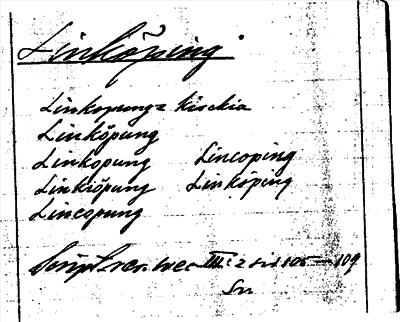 Linköping.
Linkopung= kirckia
Linköpung
Linkopung Lincoping
Linkiöpung Linköping
Lincopung
Script. rer. svec. III: 2 sid 105—109
Sv.